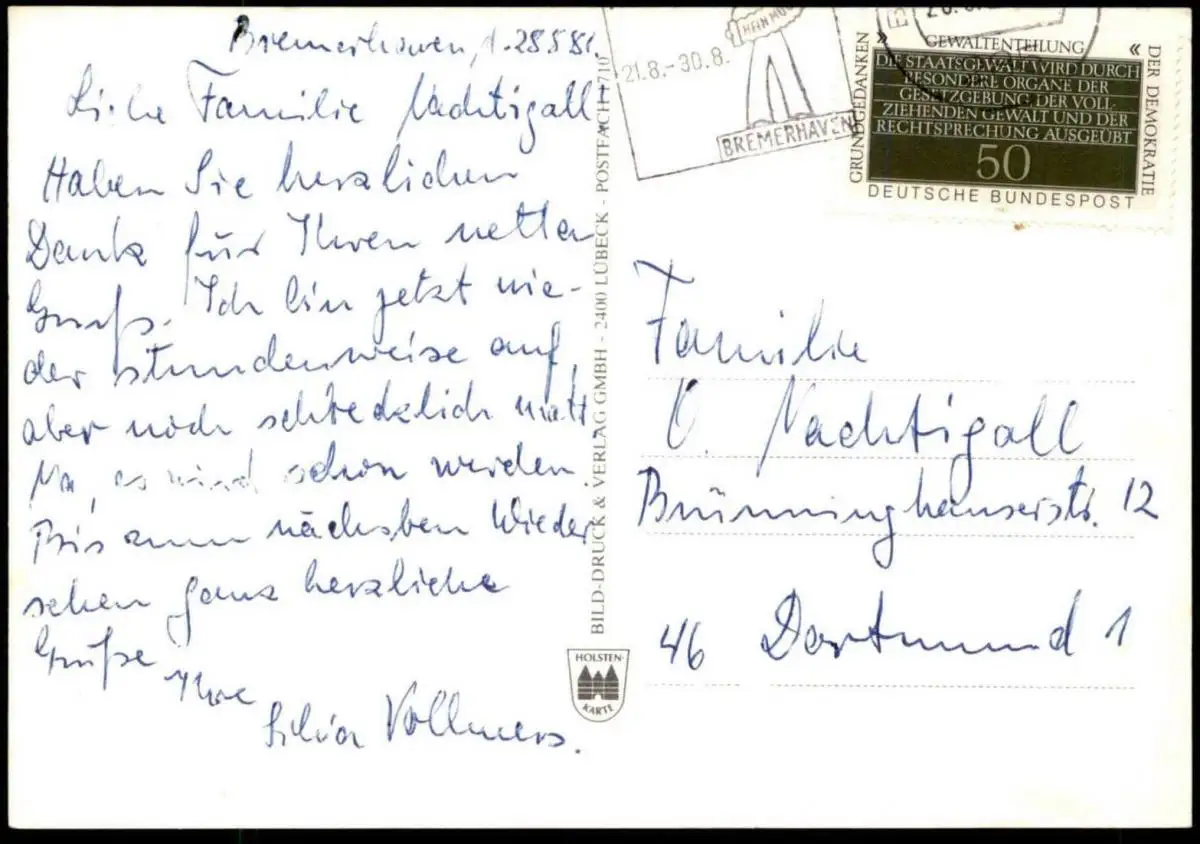 Bremerhaven, d. 28.5.81.
Liebe Familie Nachtigall
Haben Sie herzlichen
Dank für Ihren netten
Gruß. Ich bin jetzt wie-
der stundenweise auf,
aber noch schrecklich matt
Na, es wird schon werden.
Bis zum nächsten Wieder
sehen ganz herzliche
Grüße
Ihre
Silvia Vollmers.
BILD-DRUCK & VERLAG GMBH - 2400 LÜBECK - POSTFACH 1710
HOLSTEN-
KARTE
21.8.-30.8.
BREMERHAVEN
GRUNDGEDANKEN
» GEWALTENTEILUNG «
DER DEMOKRATIE
DIE STAATSGEWALT WIRD DURCH
BESONDERE ORGANE DER
GESETZGEBUNG, DER VOLL-
ZIEHENDEN GEWALT UND DER
RECHTSPRECHUNG AUSGEÜBT
50
DEUTSCHE BUNDESPOST
Familie
O. Nachtigall
Brünninghauserstr. 12
46 Dortmund 1